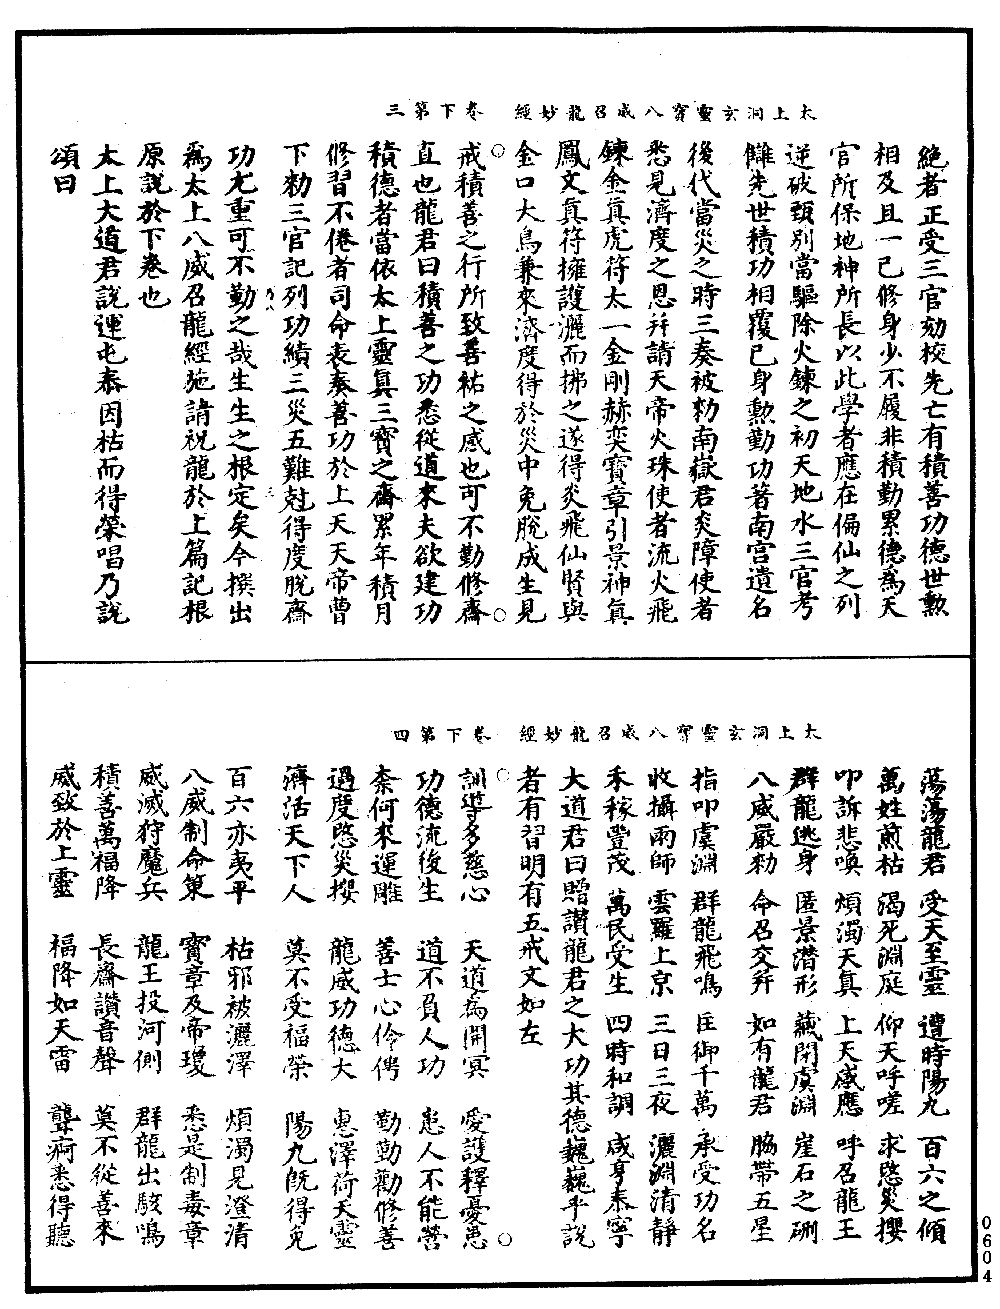 太上洞玄靈寶八威召龍妙經　卷下第三
絶者正受三官劾校先亡有積善功德世勲
相及且一己修身少不履非積勤累德為天
官所保地神所長以此學者應在偏仙之列
逆破頸別當驅除火鍊之初天地水三官考
讎先世積功相覆己身勲勤功著南宫遺名
後代當災之時三奏被勑南嶽君炎障使者
悉見濟度之恩并請天帝火珠使者流火飛
鍊金真虎符太一金剛赫奕寶章引景神真
鳳文真符擁護灑而拂之遂得炎飛仙賢與
金口大鳥兼來濟度得於災中免脫成生見
戒積善之行所致善祐之感也可不勤修齋
直也龍君曰積善之功悉從道來夫欲建功
積德者當依太上靈真三寶之齋累年積月
修習不倦者司命表奏善功於上天天帝曹
下勑三官記列功績三災五難尅得度脫齋
功尤重可不勤之哉生生之根定矣今撰出
為太上八威召龍經施請祝龍於上篇記根
原說於下卷也
太上大道君說運屯泰因枯而得榮唱乃說
頌曰
太上洞玄靈寶八威召龍妙經　卷下第四
蕩蕩龍君　受天至靈　遭時陽九　百六之傾
萬姓煎枯　渴死淵庭　仰天呼嗟　求愍災攖
叩訴悲喚　煩濁天真　上天感應　呼召龍王
群龍逃身　匿景潛形　藏閉虞淵　崖石之硎
八威嚴勑　命召交并　如有龍君　脇帶五星
指叩虞淵　群龍飛鳴　匡御千萬　承受功名
收攝雨師　雲羅上京　三日三夜　灑淵清靜
禾稼豐茂　萬民受生　四時和調　咸亨泰寧
大道君曰贈讚龍君之大功其德巍巍乎說
者有習明有五戒文如左
訓導多慈心　天道為開冥　愛護釋憂悤
功德流後生　道不負人功　患人不能營
柰何來運雕　善士心伶俜　勤勤勸修善
過度愍災攖　龍威功德大　惠澤荷天靈
濟活天下人　莫不受福榮　陽九既得免
百六亦夷平　枯邪被灑澤　煩濁見澄清
八威制命策　寶章及帝瓊　悉是制毒章
威滅狩魔兵　龍王投河側　群龍出駭鳴
積善萬福降　長齋讚音聲　莫不從善來
感致於上靈　福降如天雷　聾痾悉得聽
0604